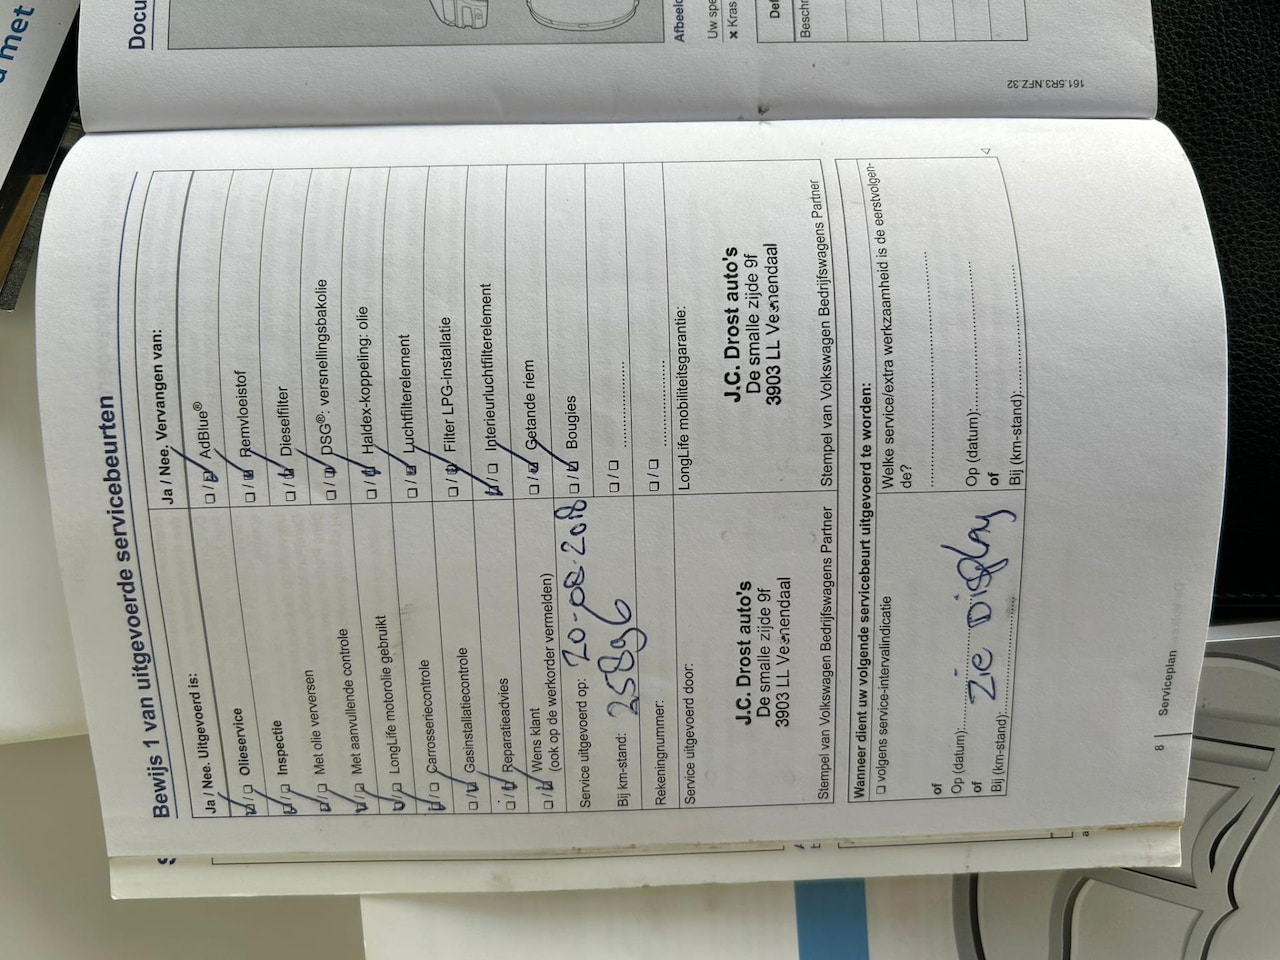 d met
Docu
Afbeeld
Uw spe
× Kras
Def
Beschr
161.5R3.NFZ.32
Bewijs 1 van uitgevoerde servicebeurten
Ja / Nee. Uitgevoerd is:
Olieservice
Inspectie
Met olie verversen
Met aanvullende controle
LongLife motorolie gebruikt
Carrosseriecontrole
Gasinstallatiecontrole
Reparatieadvies
Wens klant
(ook op de werkorder vermelden)
Service uitgevoerd op: 20-08-2018
Bij km-stand: 25896
Rekeningnummer:
Service uitgevoerd door:
J.C. Drost auto's
De smalle zijde 9f
3903 LL Veenendaal
Stempel van Volkswagen Bedrijfswagens Partner
Ja / Nee. Vervangen van:
AdBlue®
Remvloeistof
Dieselfilter
DSG®: versnellingsbakolie
Haldex-koppeling: olie
Luchtfilterelement
Filter LPG-installatie
Interieurluchtfilterelement
Getande riem
Bougies
LongLife mobiliteitsgarantie:
J.C. Drost auto's
De smalle zijde 9f
3903 LL Veenendaal
Stempel van Volkswagen Bedrijfswagens Partner
Wanneer dient uw volgende servicebeurt uitgevoerd te worden:
volgens service-intervalindicatie
of
Op (datum):
of
Bij (km-stand):
Zie Display
Welke service/extra werkzaamheid is de eerstvolgen-
de?
Op (datum):
of
Bij (km-stand):
8
Serviceplan